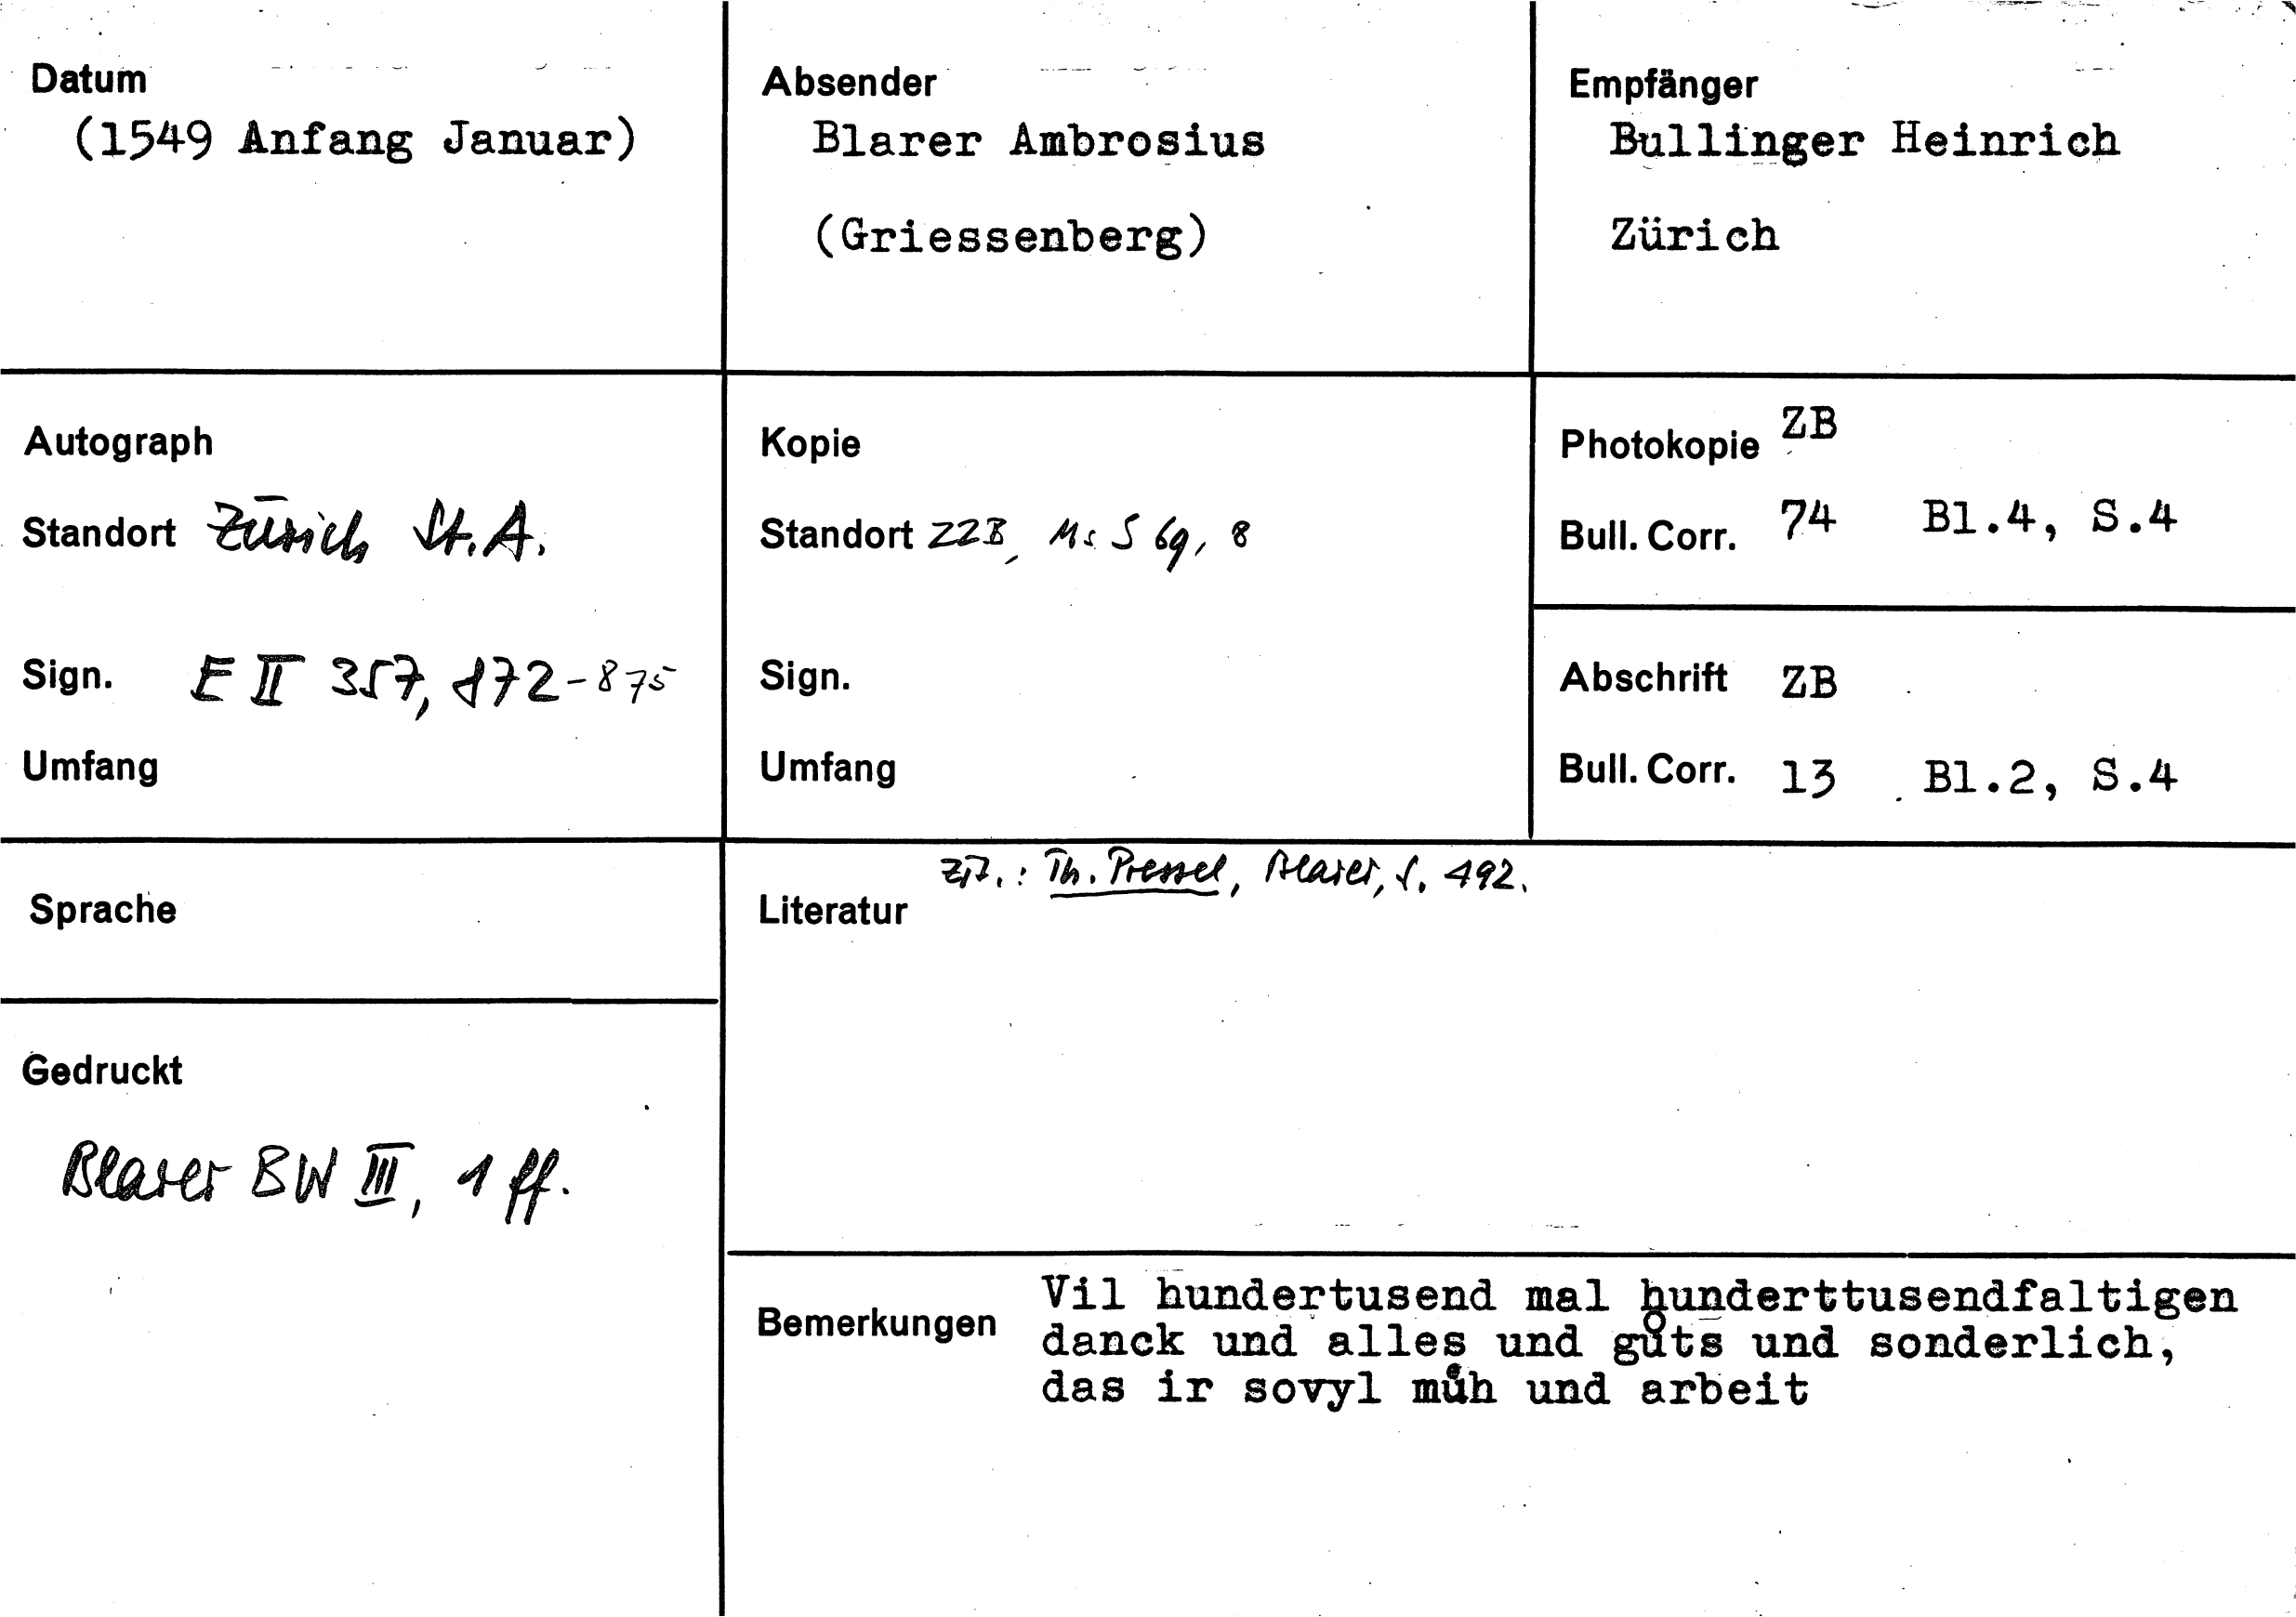 Datum
(1549 Anfang Januar)
Absender
Blarer Ambrosius
(Griessenberg)
Empfänger
Bullinger Heinrich
Zürich
Autograph
Standort Zürich St.A.
Sign. E II 357, 872-875
Umfang
Kopie
Standort ZZB, Ms S 69, 8
Sign.
Umfang
Photokopie ZB
Bull. Corr. 74 Bl.4, S.4
Abschrift ZB
Bull. Corr. 13 Bl.2, S.4
Sprache
Gedruckt
Blarer BW III, 1 ff.
Zit.: Th. Pressel, Blarer, S. 492.
Literatur
Bemerkungen
Vil hundertusend mal hunderttusendfaltigen
danck und alles und gůts und sonderlich,
das ir sovyl můh und arbeit